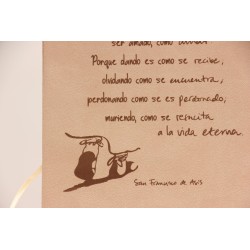 ser amado, como
Porque dando es como se recibe,
olvidando como se encuentra,
perdonando como se es perdonado;
muriendo, como se resucita
a la vida eterna.
San Francisco de Asís